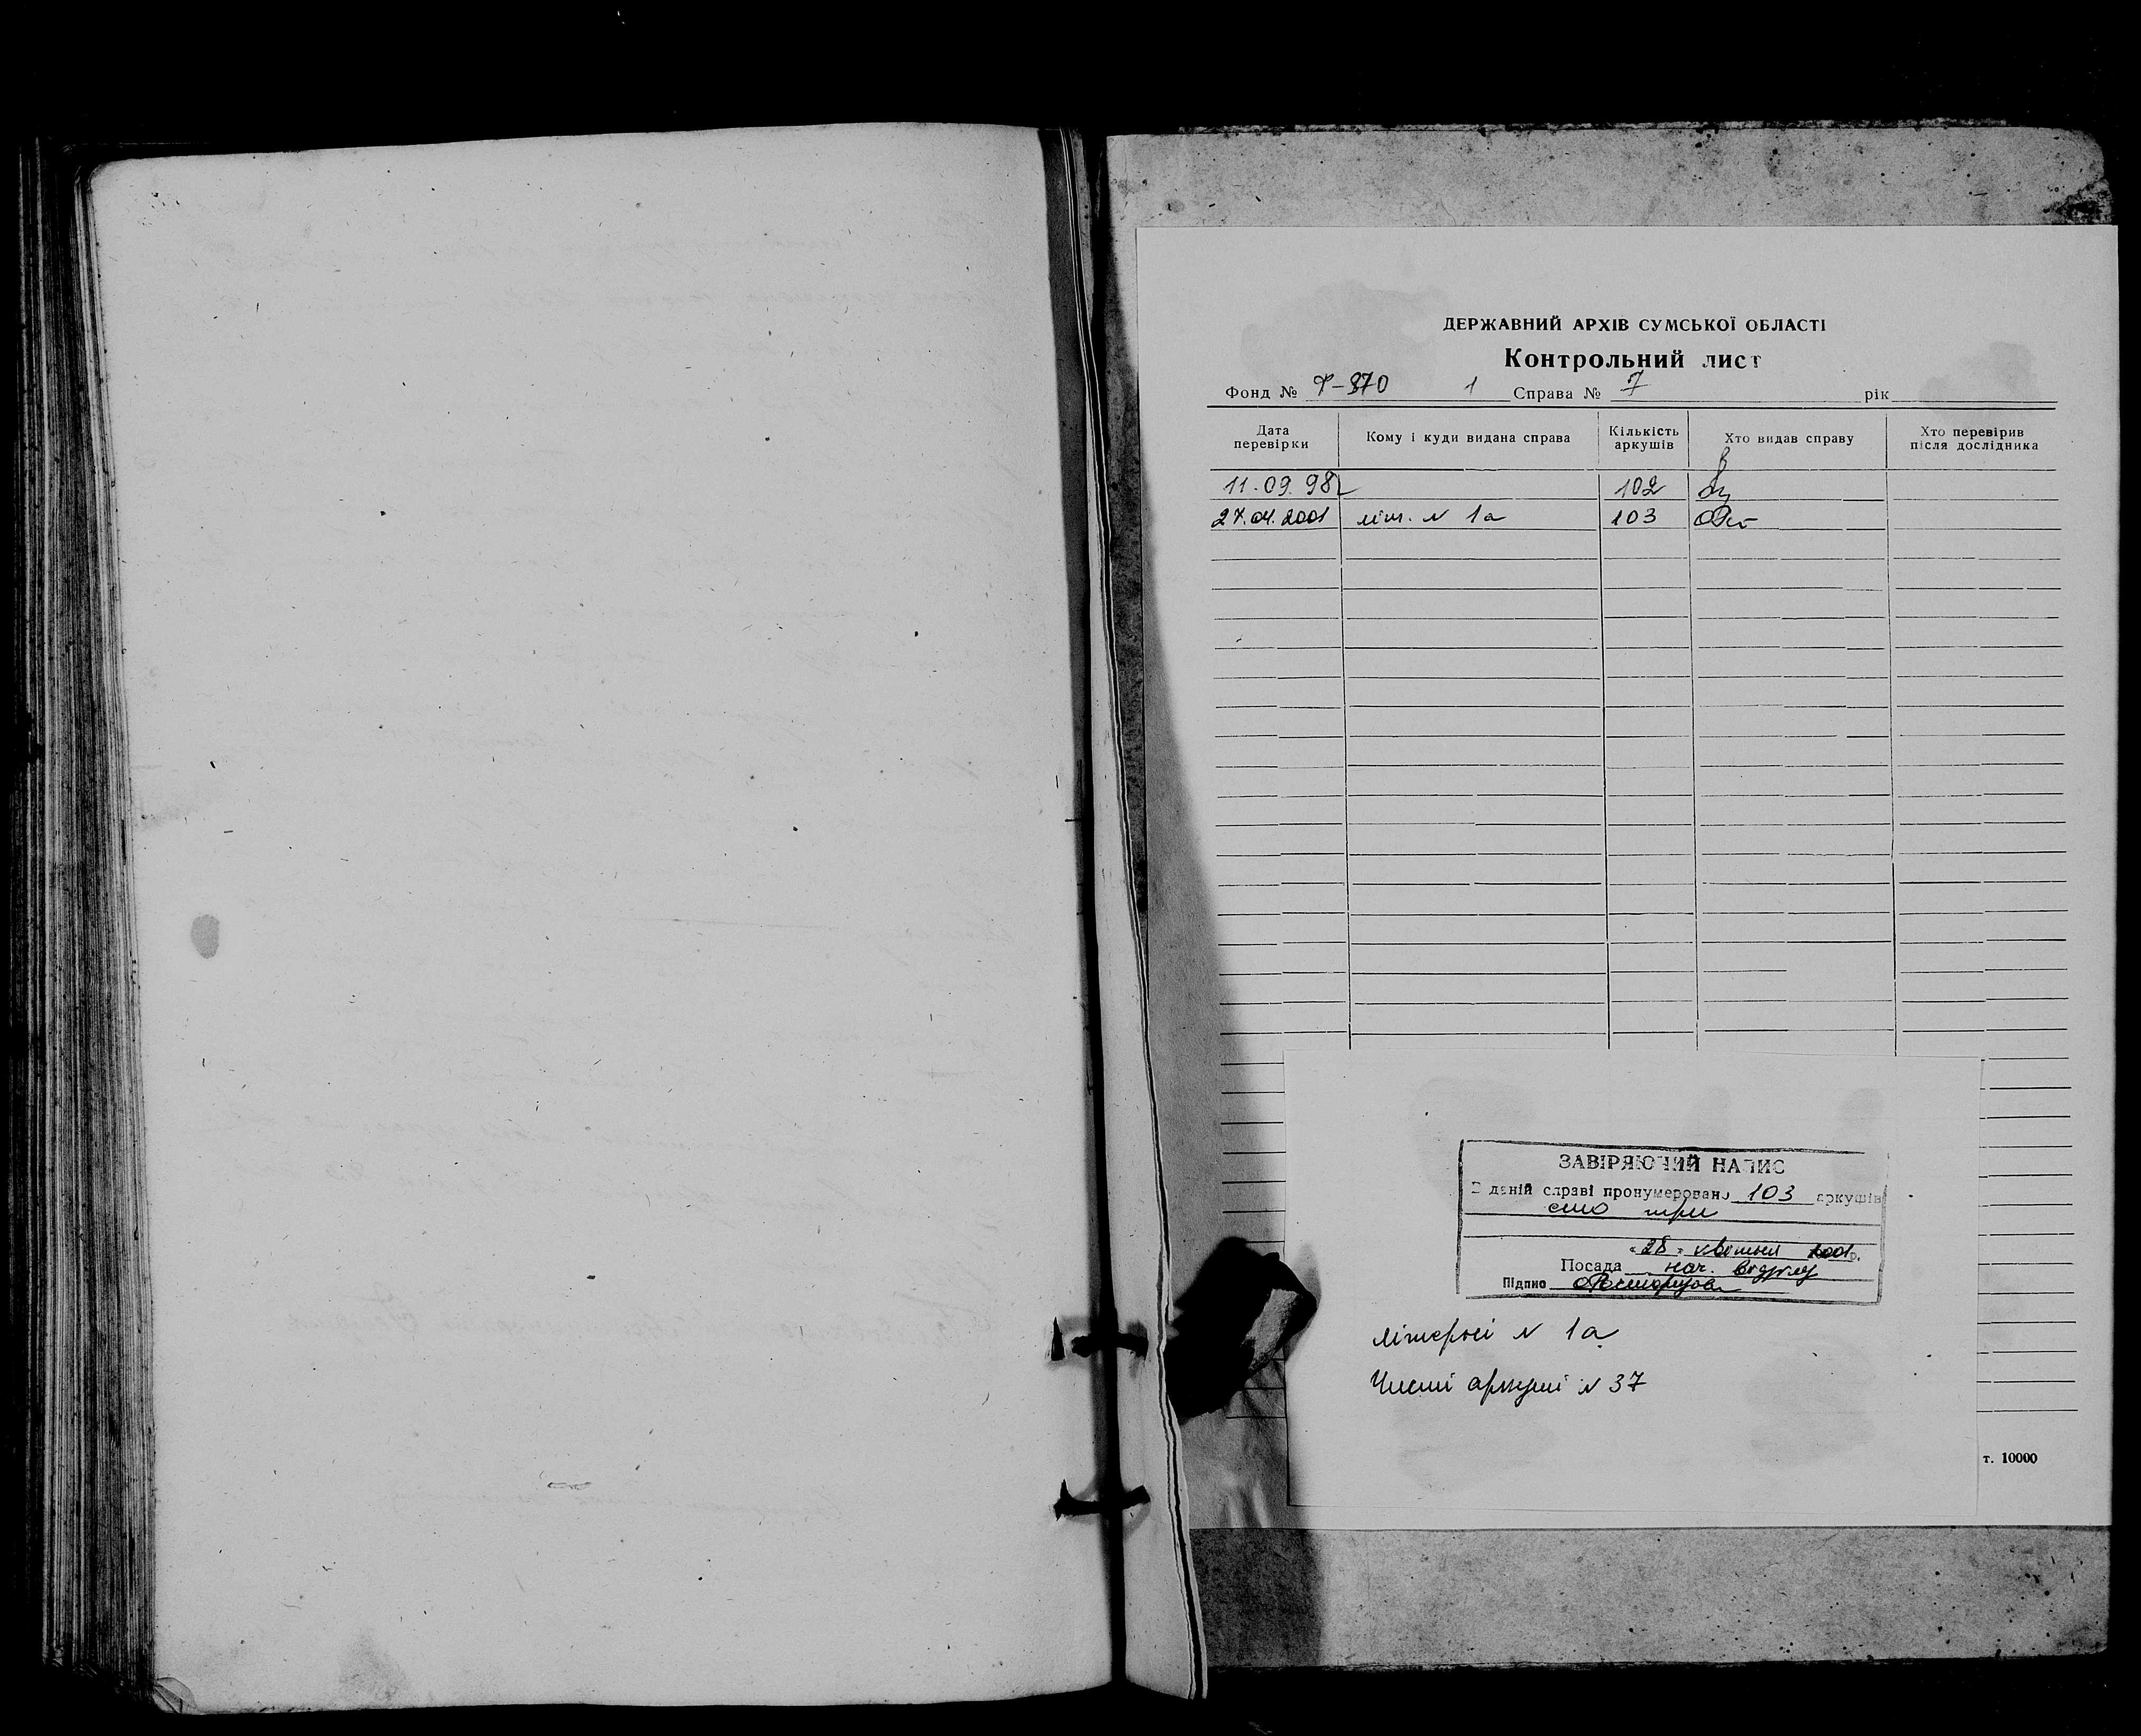 ДЕРЖАВНИЙ АРХІВ СУМСЬКОЇ ОБЛАСТІ
Контрольний лист
Фонд № Р-370 1 Справа № 7 рік
Дата перевірки Кому і куди видана справа Кількість аркушів Хто видав справу Хто перевірив після дослідника
11.09.98 102
27.04.2001 літ. N 1а 103
ЗАВІРЯЮЧИЙ НАПИС
В даній справі пронумеровано 103 аркушів
сто три
"28" квітня 2001р.
Посада нач. відділу
Підпис
літерні N 1а
Чисті аркуші N 37
т. 10000